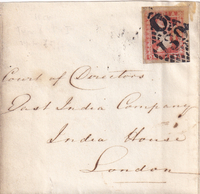 Court of Directors
East India Company
India House
London